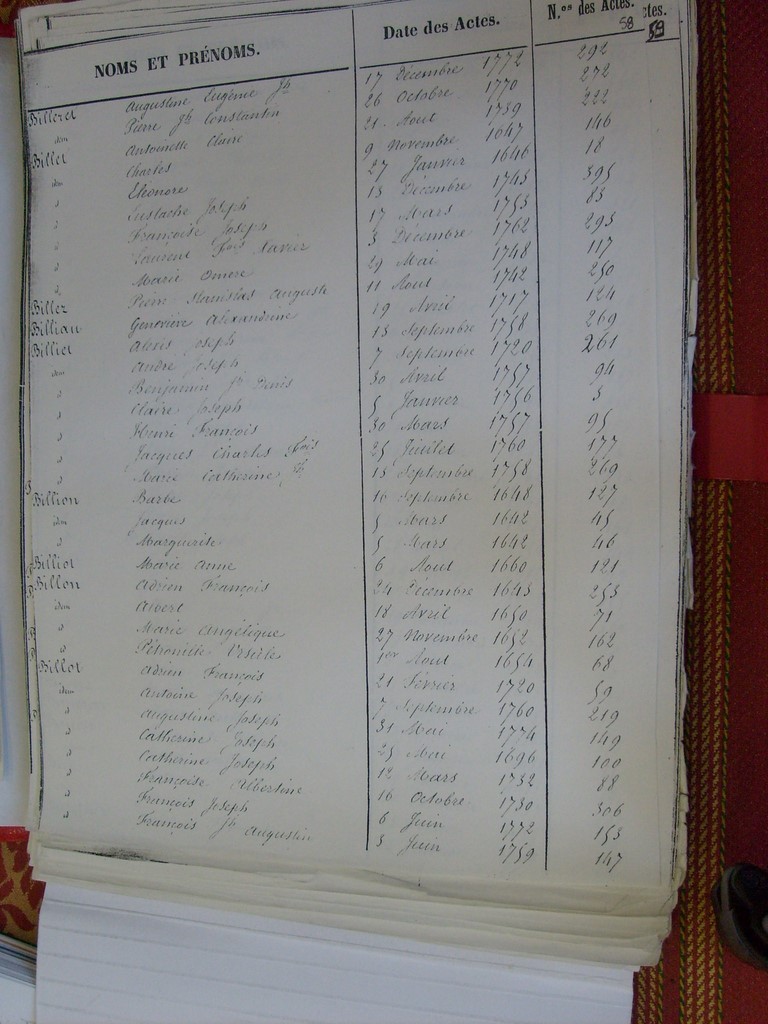 NOMS ET PRÉNOMS. Date des Actes. N.os des Actes. ctes.
58 59
Billeret Augustine Eugénie Jh 17 Décembre 1772 292
idem Pierre Jh Constantin 26 Octobre 1770 272
Billet Antoinette Claire 21 Aout 1739 222
idem Charles 9 Novembre 1647 146
d Eléonore 27 Janvier 1646 18
d Eustache Joseph 13 Décembre 1743 395
d Françoise Joseph 17 Mars 1753 83
d Laurent Fois Xavier 3 Décembre 1762 293
d Marie Omere 29 Mai 1748 117
d Pierre Stanislas Auguste 11 Aout 1742 250
Billez Geneviève Alexandrine 19 Avril 1717 124
Billiau Alexis Joseph 13 Septembre 1758 269
Billiet André Joseph 7 Septembre 1720 261
idem Benjamin Jh Denis 30 Avril 1757 94
d Claire Joseph 5 Janvier 1756 5
d Henri François 30 Mars 1757 95
d Jacques Charles Fois 25 Juillet 1760 177
d Marie Catherine Jh 13 Septembre 1758 269
Billion Barbe 16 Septembre 1648 127
idem Jacques 5 Mars 1642 45
d Marguerite 5 Mars 1642 46
Billiot Marie Anne 6 Aout 1660 121
Billon Adrien François 24 Décembre 1643 253
idem Albert 18 Avril 1650 71
d Marie Angélique 27 Novembre 1652 162
d Pétronille Ursule 1er Aout 1654 68
Billot Adrien François 21 Février 1720 59
idem Antoine Joseph 7 Septembre 1760 219
d Augustine Joseph 31 Mai 1774 149
d Catherine Joseph 25 Mai 1696 100
d Catherine Joseph 12 Mars 1732 88
d Françoise Albertine 16 Octobre 1730 306
d François Joseph 6 Juin 1772 153
d François Jh Augustin 3 Juin 1759 147